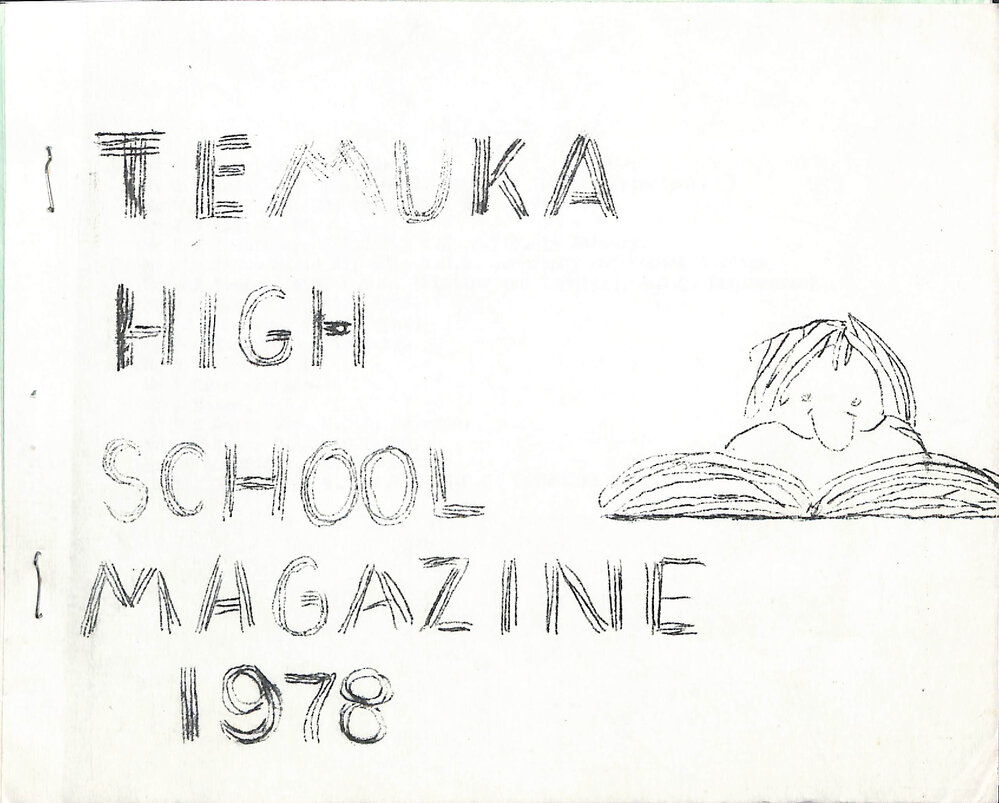 TEMUKA
HIGH
SCHOOL
MAGAZINE
1978